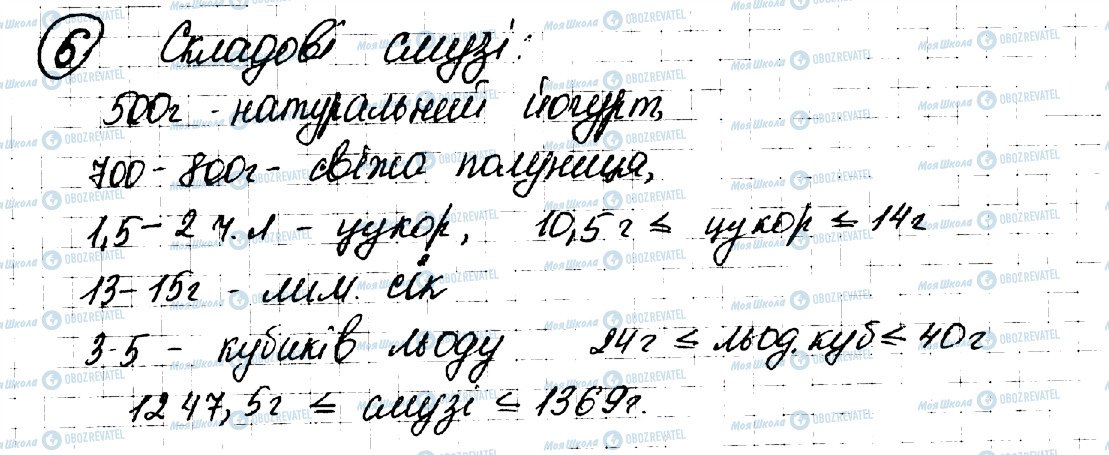 6 Складові смузі:
500г - натуральний йогурт,
700-800г - свіжа полуниця,
1,5-2 ч.л - цукор, 10,5г ≤ цукор ≤ 14г
13-15г - лим. сік
3-5 - кубиків льоду 24г ≤ льод.куб ≤ 40г
1247,5г ≤ смузі ≤ 1369г.